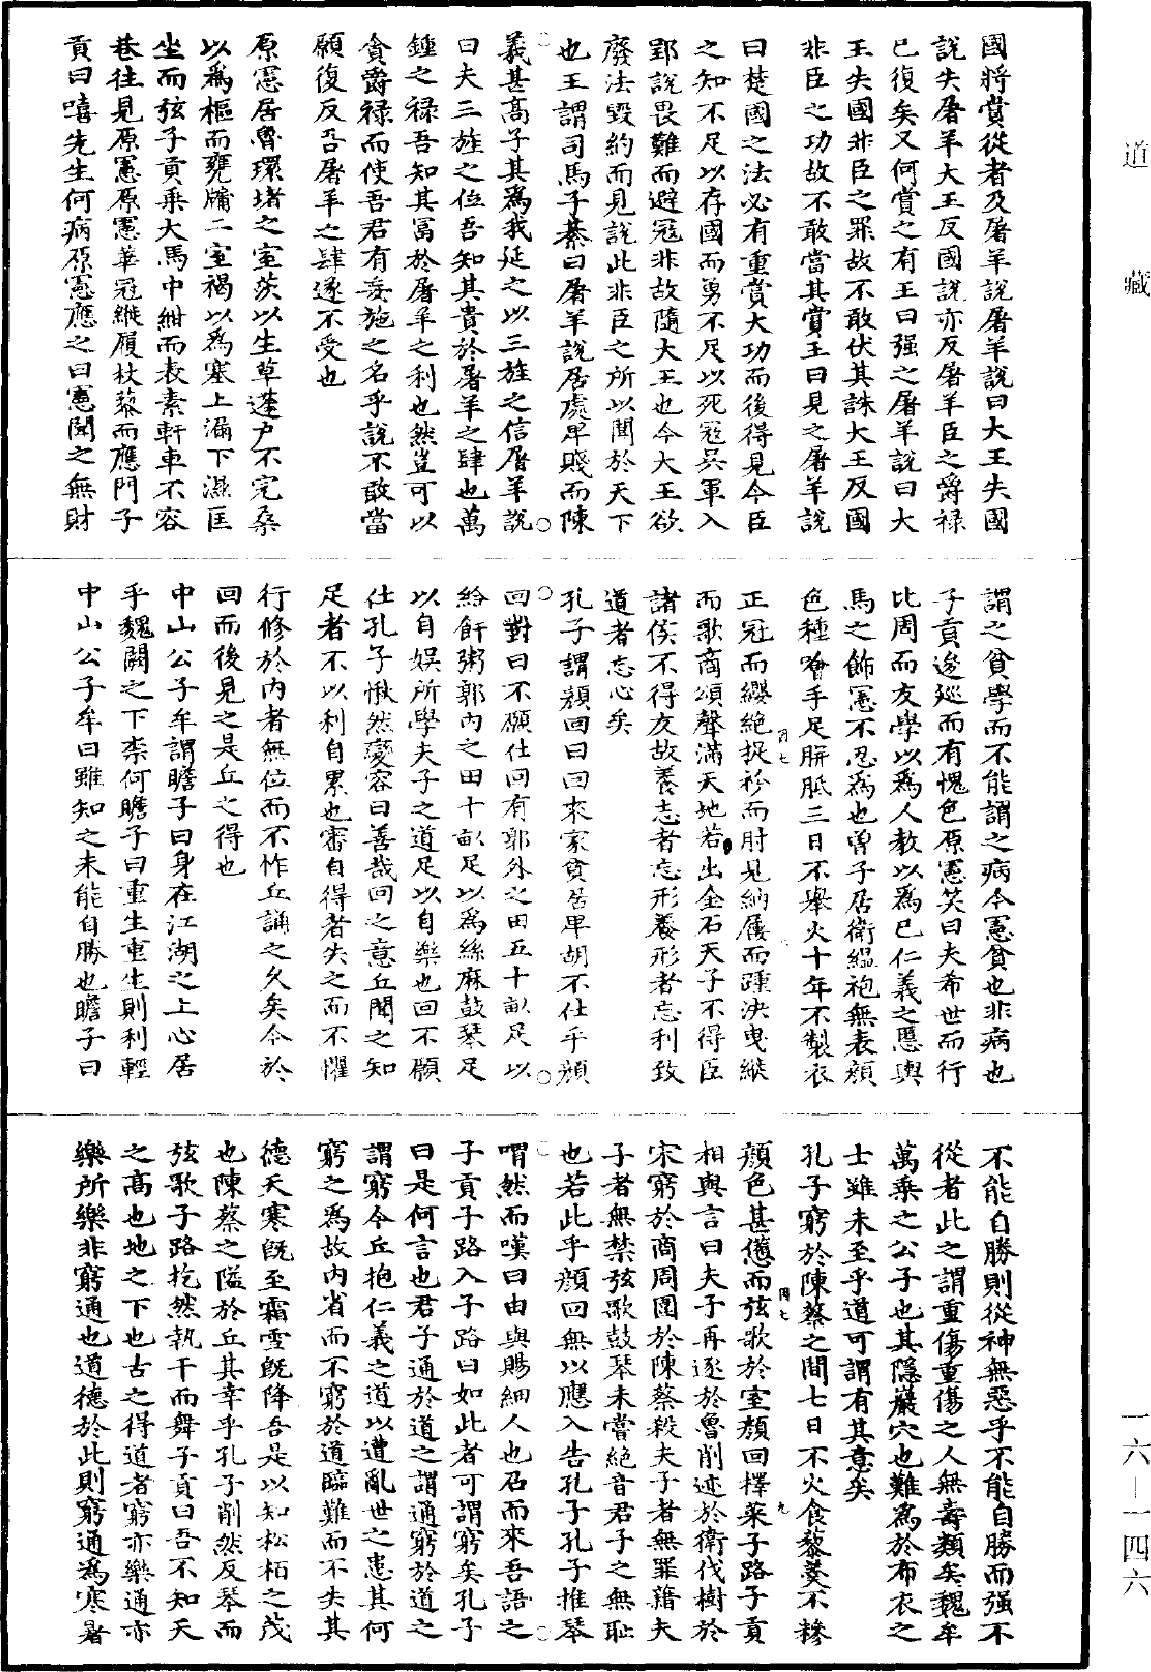 國將賞從者及屠羊說屠羊說曰大王失國
說失屠羊大王反國說亦反屠羊臣之爵禄
已復矣又何賞之有王曰强之屠羊說曰大
王失國非臣之罪故不敢伏其誅大王反國
非臣之功故不敢當其賞王曰見之屠羊說
曰楚國之法必有重賞大功而後得見今臣
之知不足以存國而勇不足以死寇吳軍入
郢說畏難而避寇非故隨大王也今大王欲
廢法毀約而見說此非臣之所以聞於天下
也王謂司馬子綦曰屠羊說居處卑賤而陳
義甚高子其爲我延之以三旌之信屠羊說
曰夫三旌之位吾知其貴於屠羊之肆也萬
鍾之禄吾知其富於屠羊之利也然豈可以
貪爵禄而使吾君有妄施之名乎說不敢當
願復反吾屠羊之肆遂不受也
原憲居魯環堵之室茨以生草蓬户不完桑
以爲樞而甕牖二室褐以爲塞上漏下濕匡
坐而弦子貢乘大馬中紺而表素軒車不容
巷往見原憲原憲華冠縰履杖藜而應門子
貢曰嘻先生何病原憲應之曰憲聞之無財
謂之貧學而不能謂之病今憲貧也非病也
子貢逡巡而有愧色原憲笑曰夫希世而行
比周而友學以爲人教以爲已仁義之慝輿
馬之飾憲不忍爲也曾子居衛緼袍無表顔
色種噲手足胼胝三日不舉火十年不製衣
正冠而纓絶捉衿而肘見納屨而踵決曳縰
而歌商頌聲滿天地若出金石天子不得臣
諸侯不得友故養志者忘形養形者忘利致
道者忘心矣
孔子謂顔回曰回來家貧居卑胡不仕乎顔
回對曰不願仕回有郭外之田五十畝足以
給飦粥郭内之田十畝足以爲絲麻鼓琴足
以自娱所學夫子之道足以自樂也回不願
仕孔子愀然變容曰善哉回之意丘聞之知
足者不以利自累也審自得者失之而不懼
行修於内者無位而不怍丘誦之久矣今於
回而後見之是丘之得也
中山公子牟謂瞻子曰身在江湖之上心居
乎魏闕之下柰何瞻子曰重生重生則利輕
中山公子牟曰雖知之未能自勝也瞻子曰
不能自勝則從神無惡乎不能自勝而强不
從者此之謂重傷重傷之人無壽類矣魏牟
萬乘之公子也其隱巖穴也難爲於布衣之
士雖未至乎道可謂有其意矣
孔子窮於陳蔡之間七日不火食藜羹不糝
顔色甚憊而弦歌於室顔回擇菜子路子貢
相與言曰夫子再逐於魯削迹於衛伐樹於
宋窮於商周圍於陳蔡殺夫子者無罪藉夫
子者無禁弦歌鼓琴未嘗絶音君子之無恥
也若此乎顔回無以應入告孔子孔子推琴
喟然而嘆曰由與賜細人也召而來吾語之
子貢子路入子路曰如此者可謂窮矣孔子
曰是何言也君子通於道之謂通窮於道之
謂窮今丘抱仁義之道以遭亂世之患其何
窮之爲故内省而不窮於道臨難而不失其
德天寒旣至霜雪旣降吾是以知松栢之茂
也陳蔡之隘於丘其幸乎孔子削然反琴而
弦歌子路扢然執干而舞子貢曰吾不知天
之高也地之下也古之得道者窮亦樂通亦
樂所樂非窮通也道德於此則窮通爲寒暑
道藏
一六—一四六